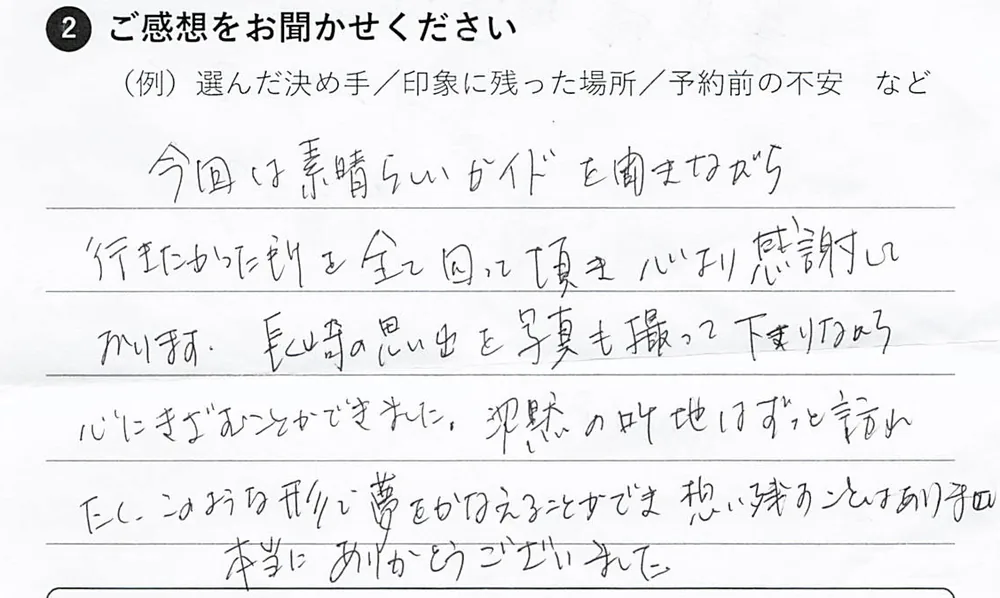 2 ご感想をお聞かせください
（例）選んだ決め手／印象に残った場所／予約前の不安　など
今回は素晴らしいガイドを聞きながら
行きたかった所を全て回って頂き心より感謝して
おります。長崎の思い出を写真も撮って下さりながら
心にきざむことができました。沈黙の地はずっと訪れ
たく、このような形で夢をかなえることができ 想い残すことはありません
本当にありがとうございました